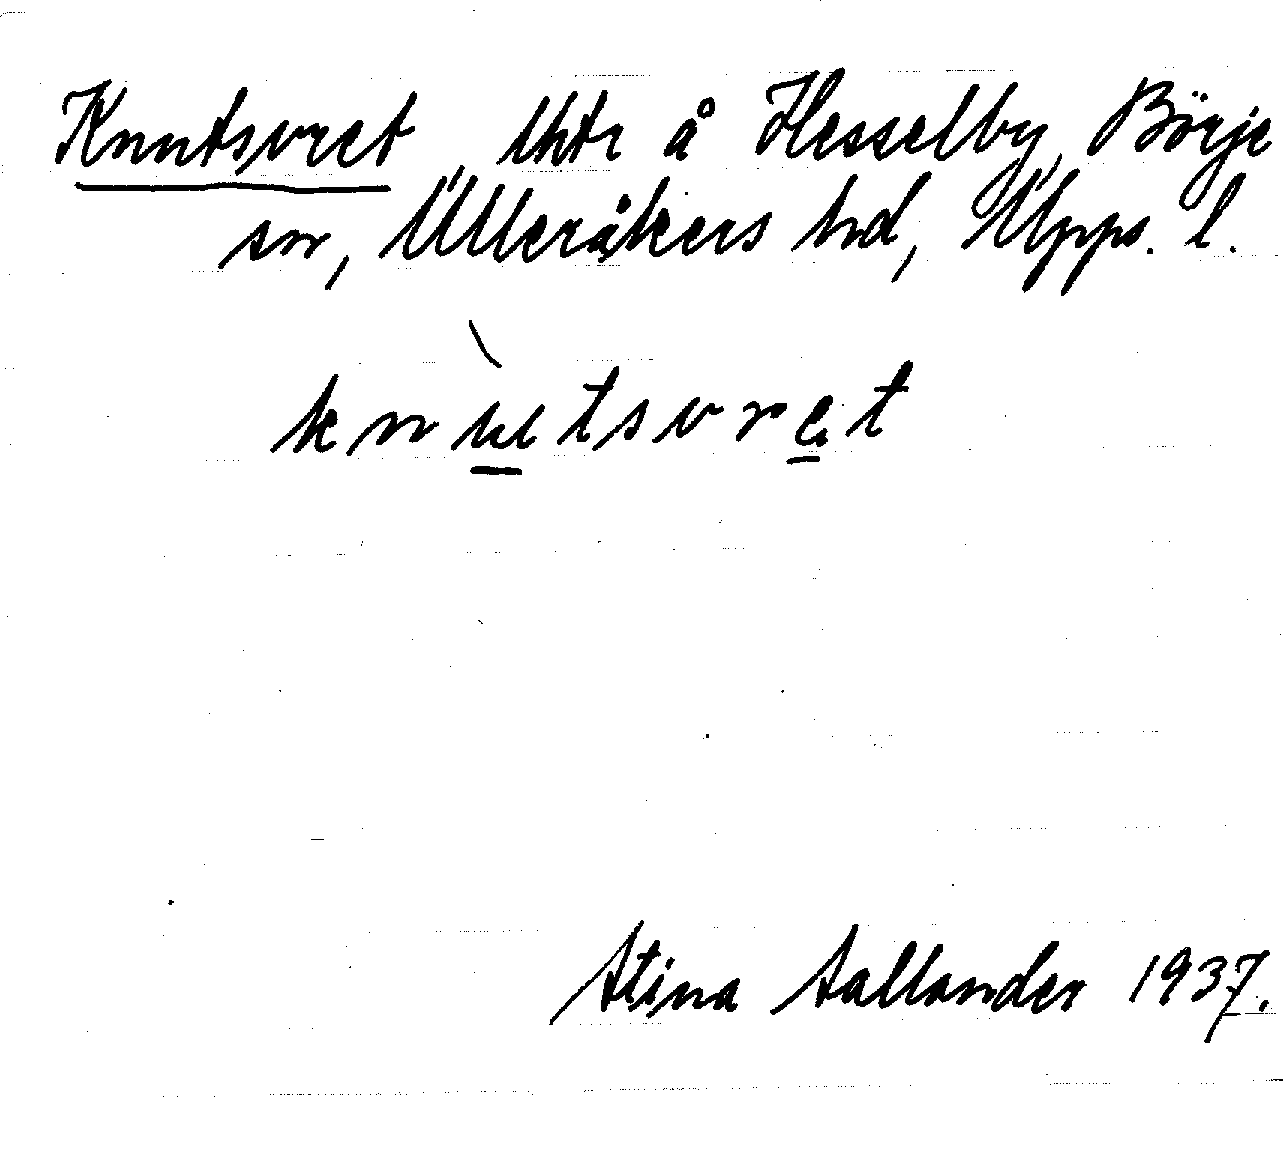 Knutsvret, lht å Hesselby, Börje
sn, Ulleråkers hd, Upps. l.
knùtsvret
Stina Sallander 1937.